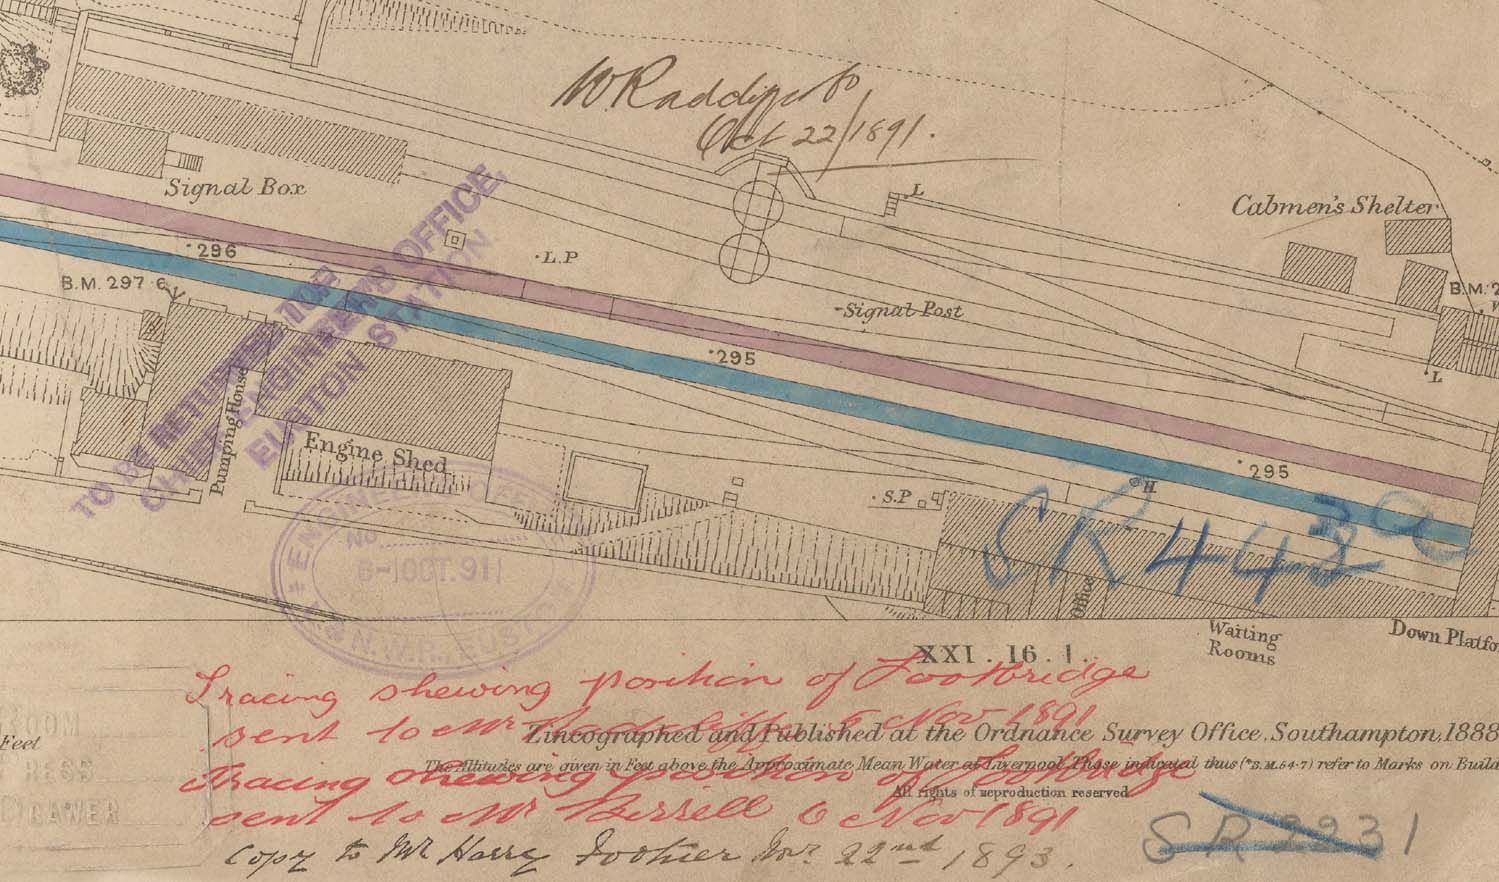 Oct 22/1891.
Signal Box
L
Cabmen's Shelter
296
L.P
B.M. 297·6
B.M. 2
Signal Post
295
TO BE RETURNED TO
CHIEF ENGINEER'S OFFICE,
EUSTON STATION
Pumping House
Engine Shed
L
295
S.P
H
SR 443
ENGINEER'S OFFICE
No
6-OCT.91
L. & N.W.R., EUSTON
Office
Waiting
Rooms
Down Platfo
XXI . 16 . 1.
Tracing shewing position of Footbridge
sent to Mr 6 Nov 1891
Feet
Zincographed and Published at the Ordnance Survey Office, Southampton, 1888
The Altitudes are given in Feet above the Approximate Mean Water at Liverpool. Those indicated thus (*B.M.54·7) refer to Marks on Build
Tracing shewing position of Footbridge
All rights of reproduction reserved
sent to Mr 6 Nov 1891
SR 2231
Copy to Mr Harry Nov. 22nd 1893.